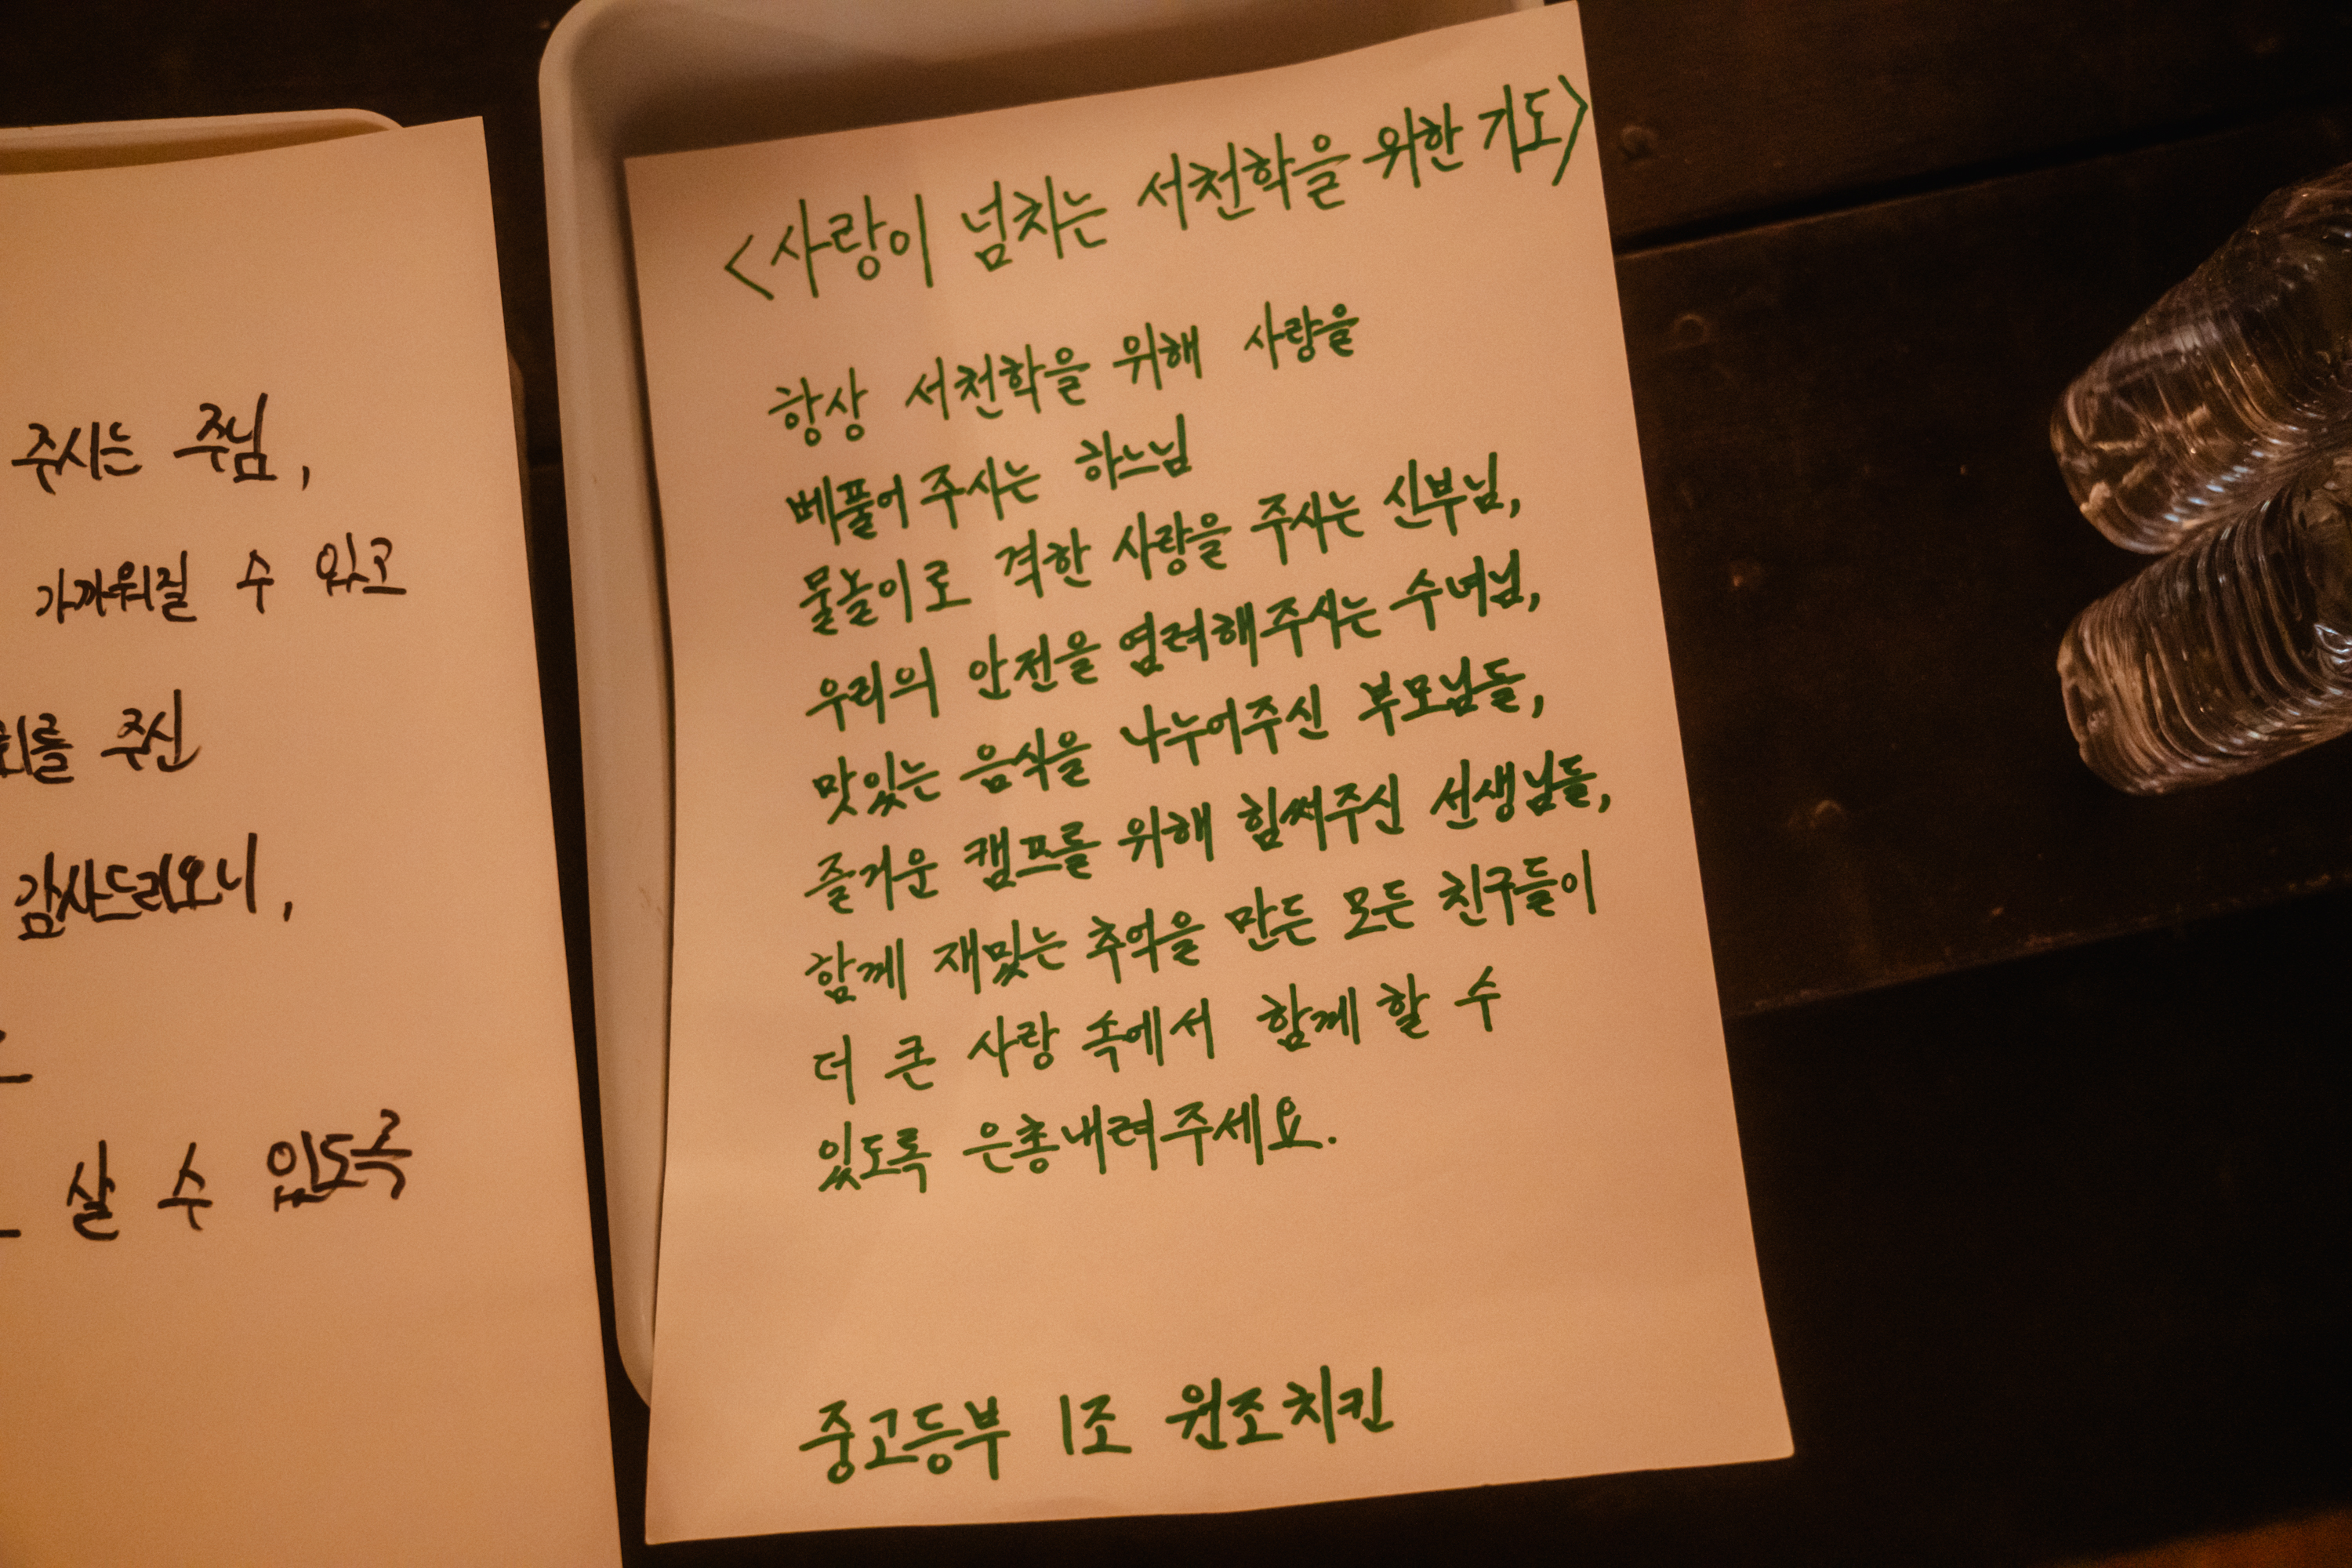 주시는 주님,
가까워질 수 있고
회를 주신
감사드리오니,
살 수 있도록
<사랑이 넘치는 서천학을 위한 기도>
항상 서천학을 위해 사랑을
베풀어 주시는 하느님
물놀이로 격한 사랑을 주시는 신부님,
우리의 안전을 염려해주시는 수녀님,
맛있는 음식을 나누어주신 부모님들,
즐거운 캠프를 위해 힘써주신 선생님들,
함께 재밌는 추억을 만든 모든 친구들이
더 큰 사랑 속에서 함께 할 수
있도록 은총내려주세요.
중고등부 1조 원조치킨